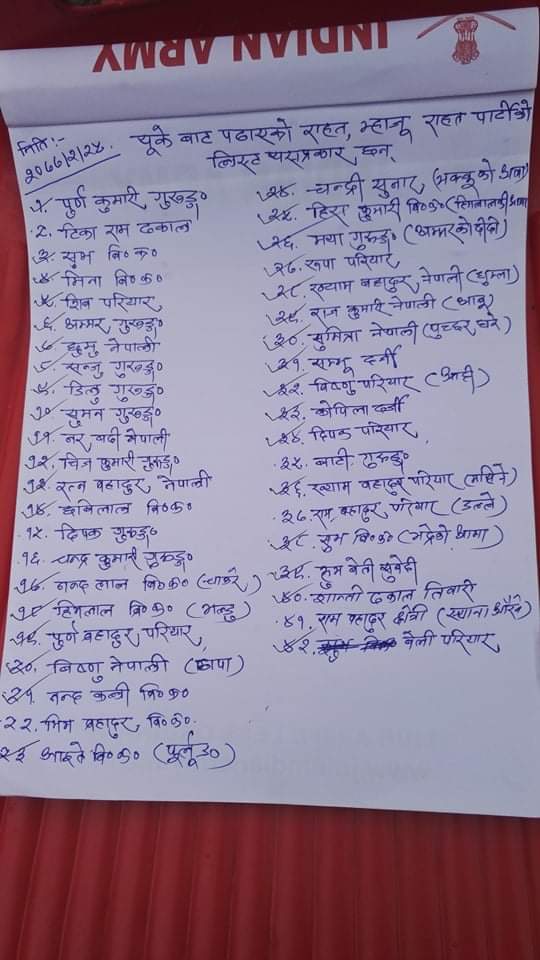 INDIAN ARMY
मिति:-
२०७२/२/२५.
यूके बाट पठाएको राहत, म्हाजू राहत पार्टीको
लिस्ट यसप्रकार छन्
१. पुर्ण कुमारी गुरुङ्ग
२. टिका राम ढकाल
३. सुभ वि०क०
४. मिना वि०क०
५. शिव परियार
६. अम्मर गुरुङ्ग
७. झुमु नेपाली
८. सन्जु गुरुङ्ग
९. डिलु गुरुङ्ग
१०. सुमन गुरुङ्ग
११. नर बदी नेपाली
१२. चित्र कुमारी गुरुङ्ग
१३. रत्न बहादुर नेपाली
१४. छविलाल वि०क०
१५. दिपक गुरुङ्ग
१६. चन्द्र कुमारी गुरुङ्ग
१७. नन्द लाल वि०क०
१८. हिमलाल वि०क०
१९. पुर्ण बहादुर परियार
२०. विष्णु नेपाली
२१. नन्द कली वि०क०
२२. भिम बहादुर वि०क०.
२३ आइते वि०क०
२४. चन्द्री सुनार (भक्कूको आमा)
२५. हिरा कुमारी वि०क०
२६. मया गुरुङ्ग (अम्मरको दिदी)
२७. रूपा परियार
२८. श्याम बहादुर नेपाली
२९. राज कुमारी नेपाली
३०. सुमित्रा नेपाली
३१. सम्भू दर्जी
३२. विष्णु परियार
३३. कोपिला दर्जी
३४. दिपक परियार
३५. बाटी गुरुङ्ग
३६. श्याम बहादुर परियार
३७. राम बहादुर परियार
३८. सुभ वि०क०
३९. कुम बेती सुवेदी
४०. शान्ती ढकाल तिवारी
४१. राम बहादुर क्षेत्री
४२. बेली परियार